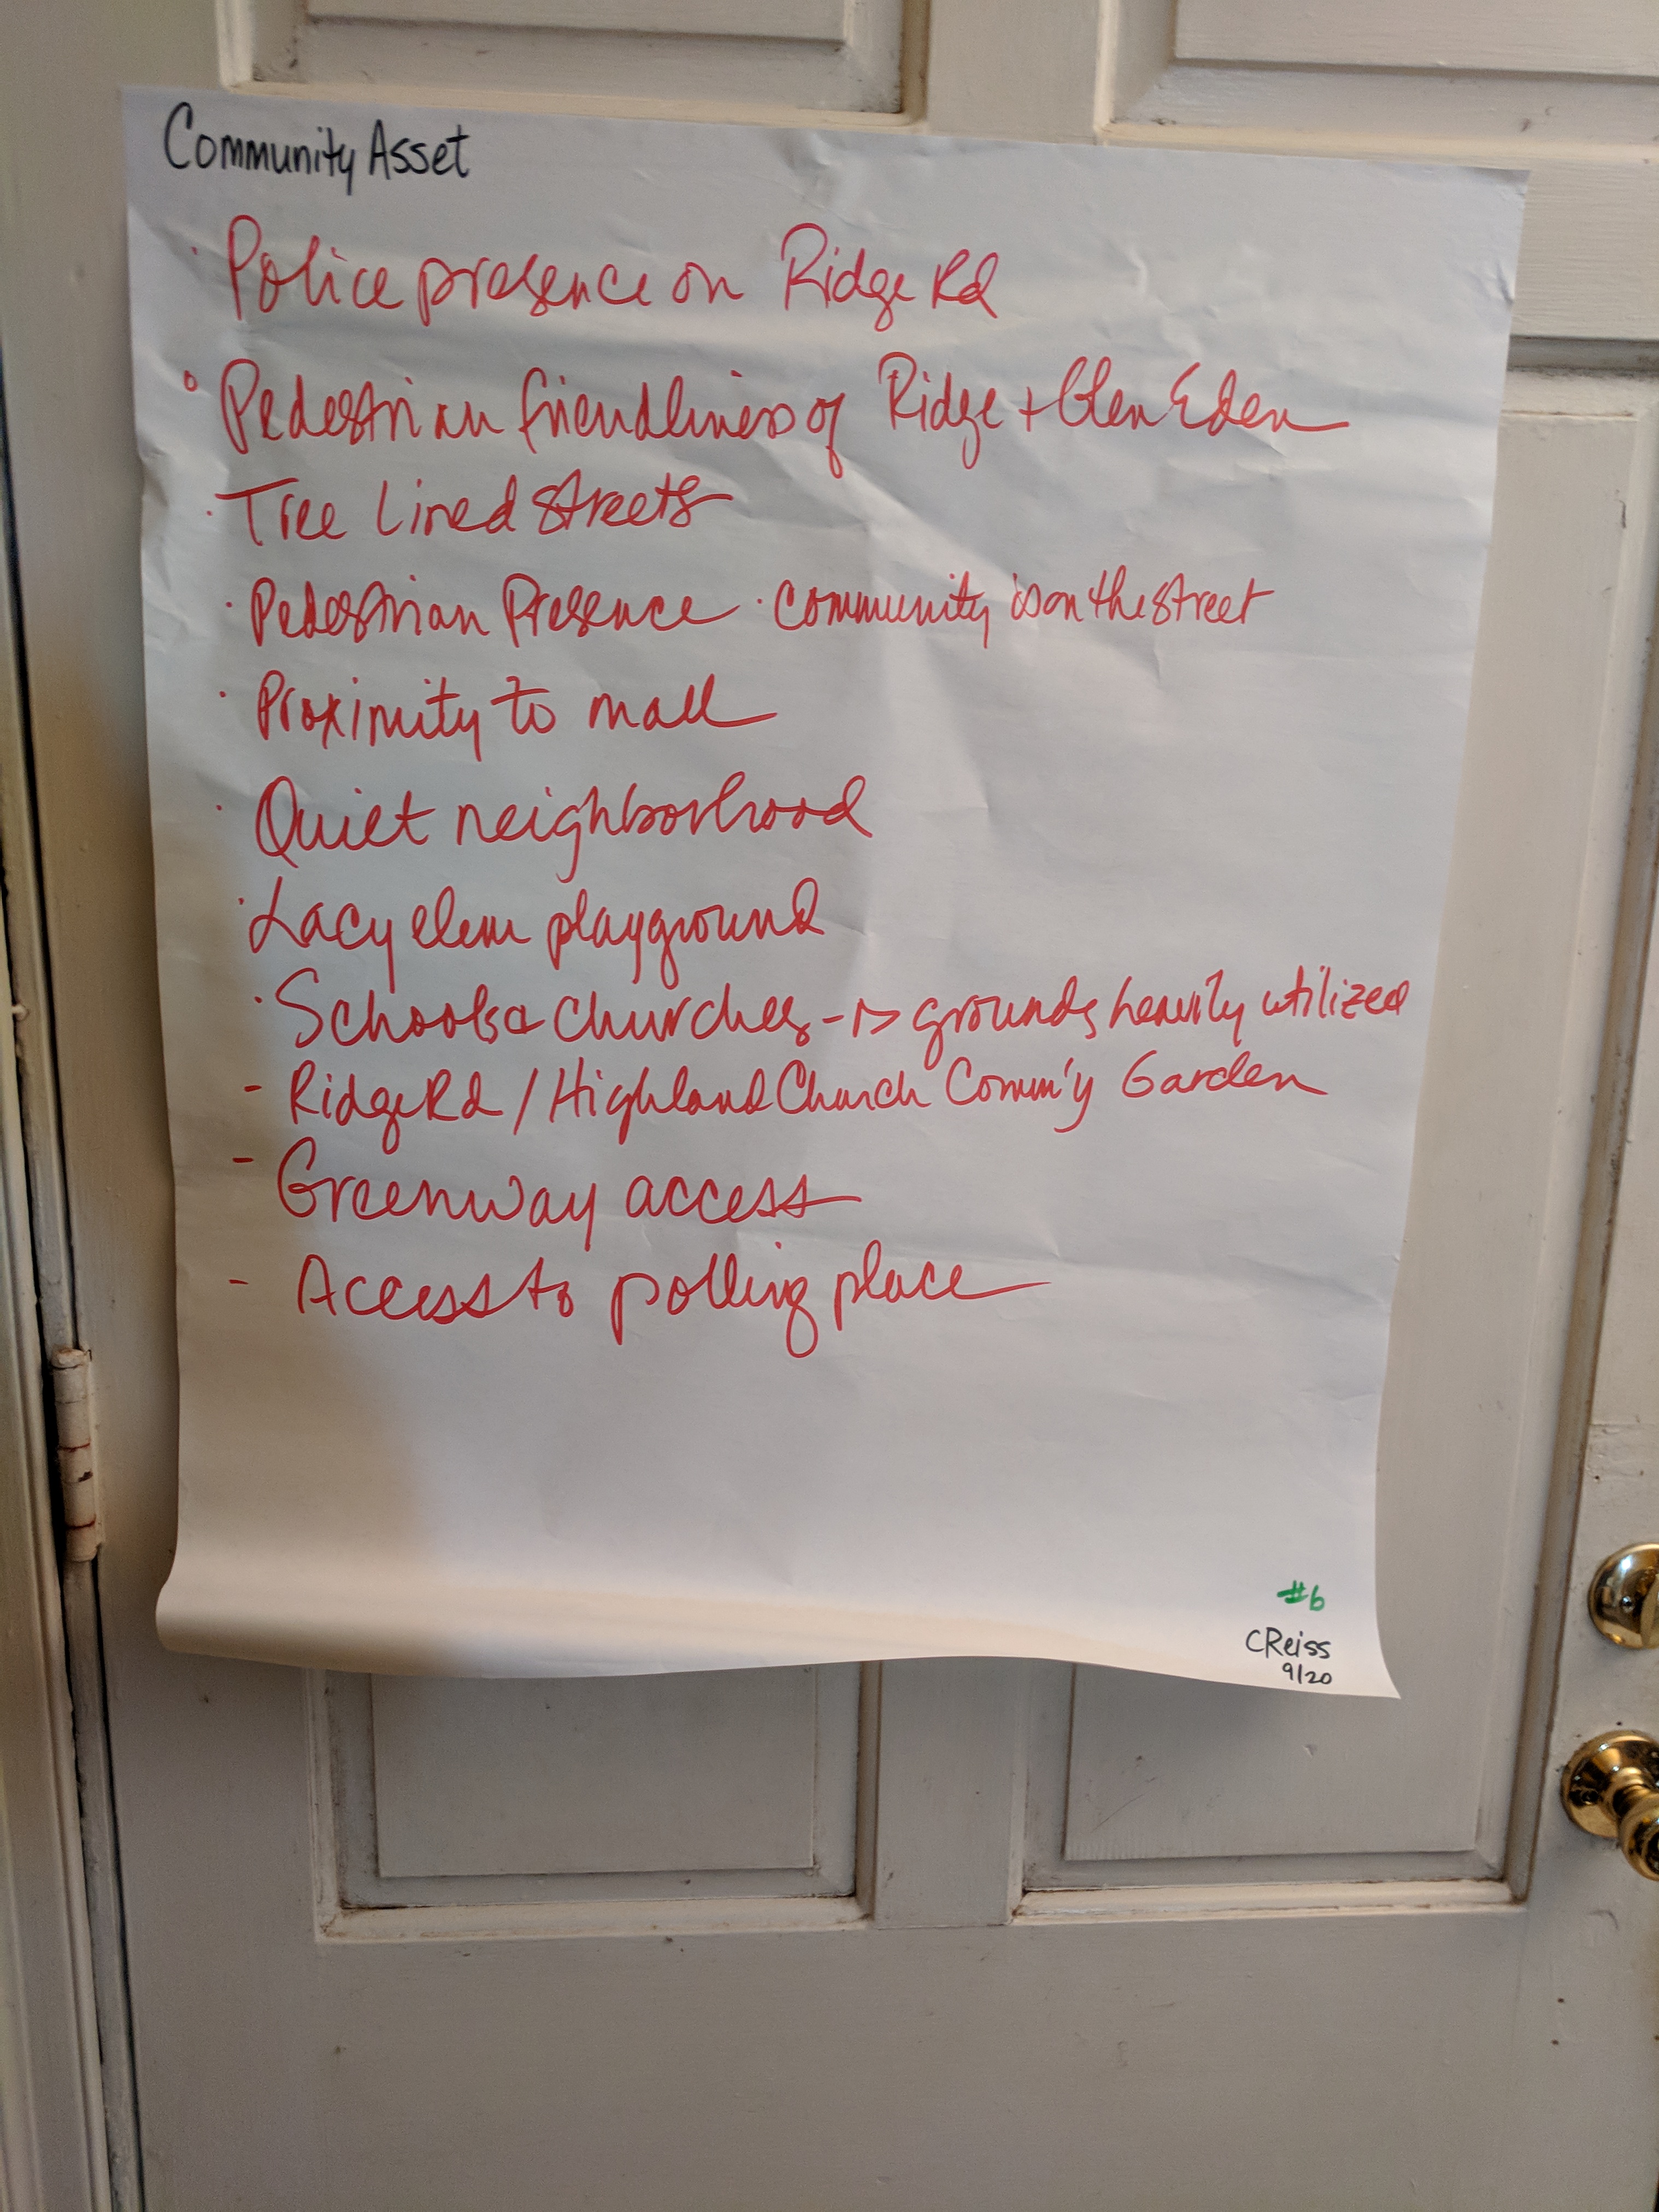 Community Asset
· Police presence on Ridge Rd
° Pedestrian friendliness of Ridge + Glen Eden
· Tree Lined Streets
· Pedestrian Presence · Community is on the street
· Proximity to mall
· Quiet neighborhood
· Lacy elem playground
· Schools & Churches -> grounds heavily utilized
- Ridge Rd / Highland Church Comm'y Garden
- Greenway access
- Access to polling place
#6
CReiss
9/20